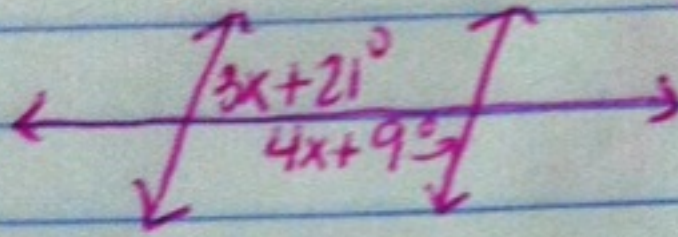 3x+21°
4x+9°